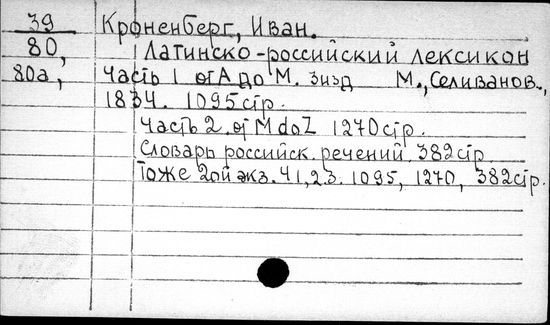 39 Кроненберг, Иван.
80, Латинско-российский лексикон
80а, Часть 1 от А до М. 3 изд М., Селиванов.,
1834. 1095 стр.
Часть 2. от М do Z 1270 стр.
Словарь российск. речений. 382 стр.
Тоже 2ой экз. Ч 1, 2, 3. 1095, 1270, 382 стр.